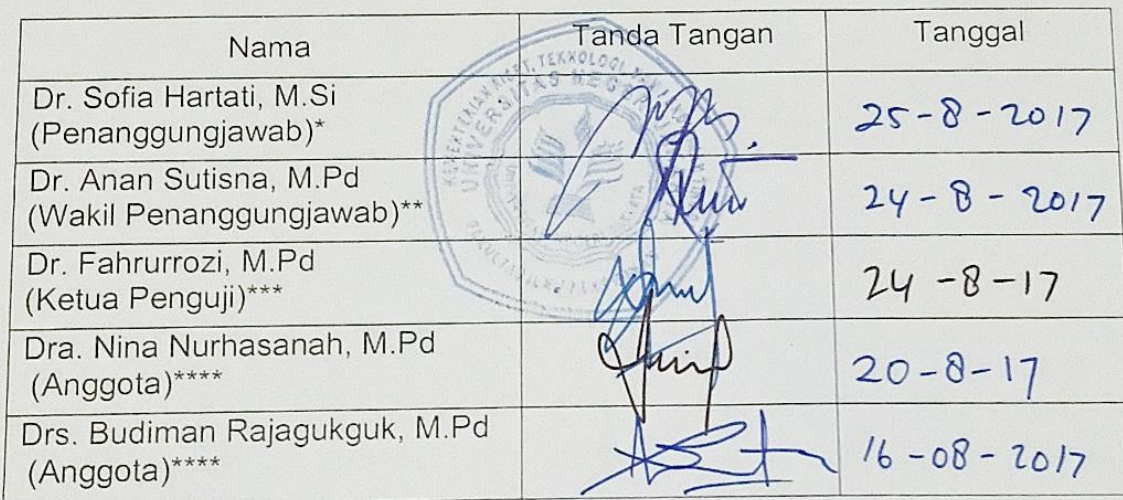 Nama Tanda Tangan Tanggal
Dr. Sofia Hartati, M.Si
(Penanggungjawab)* 25-8-2017
Dr. Anan Sutisna, M.Pd
(Wakil Penanggungjawab)** 24-8-2017
Dr. Fahrurrozi, M.Pd
(Ketua Penguji)*** 24-8-17
Dra. Nina Nurhasanah, M.Pd
(Anggota)**** 20-8-17
Drs. Budiman Rajagukguk, M.Pd
(Anggota)**** 16-08-2017